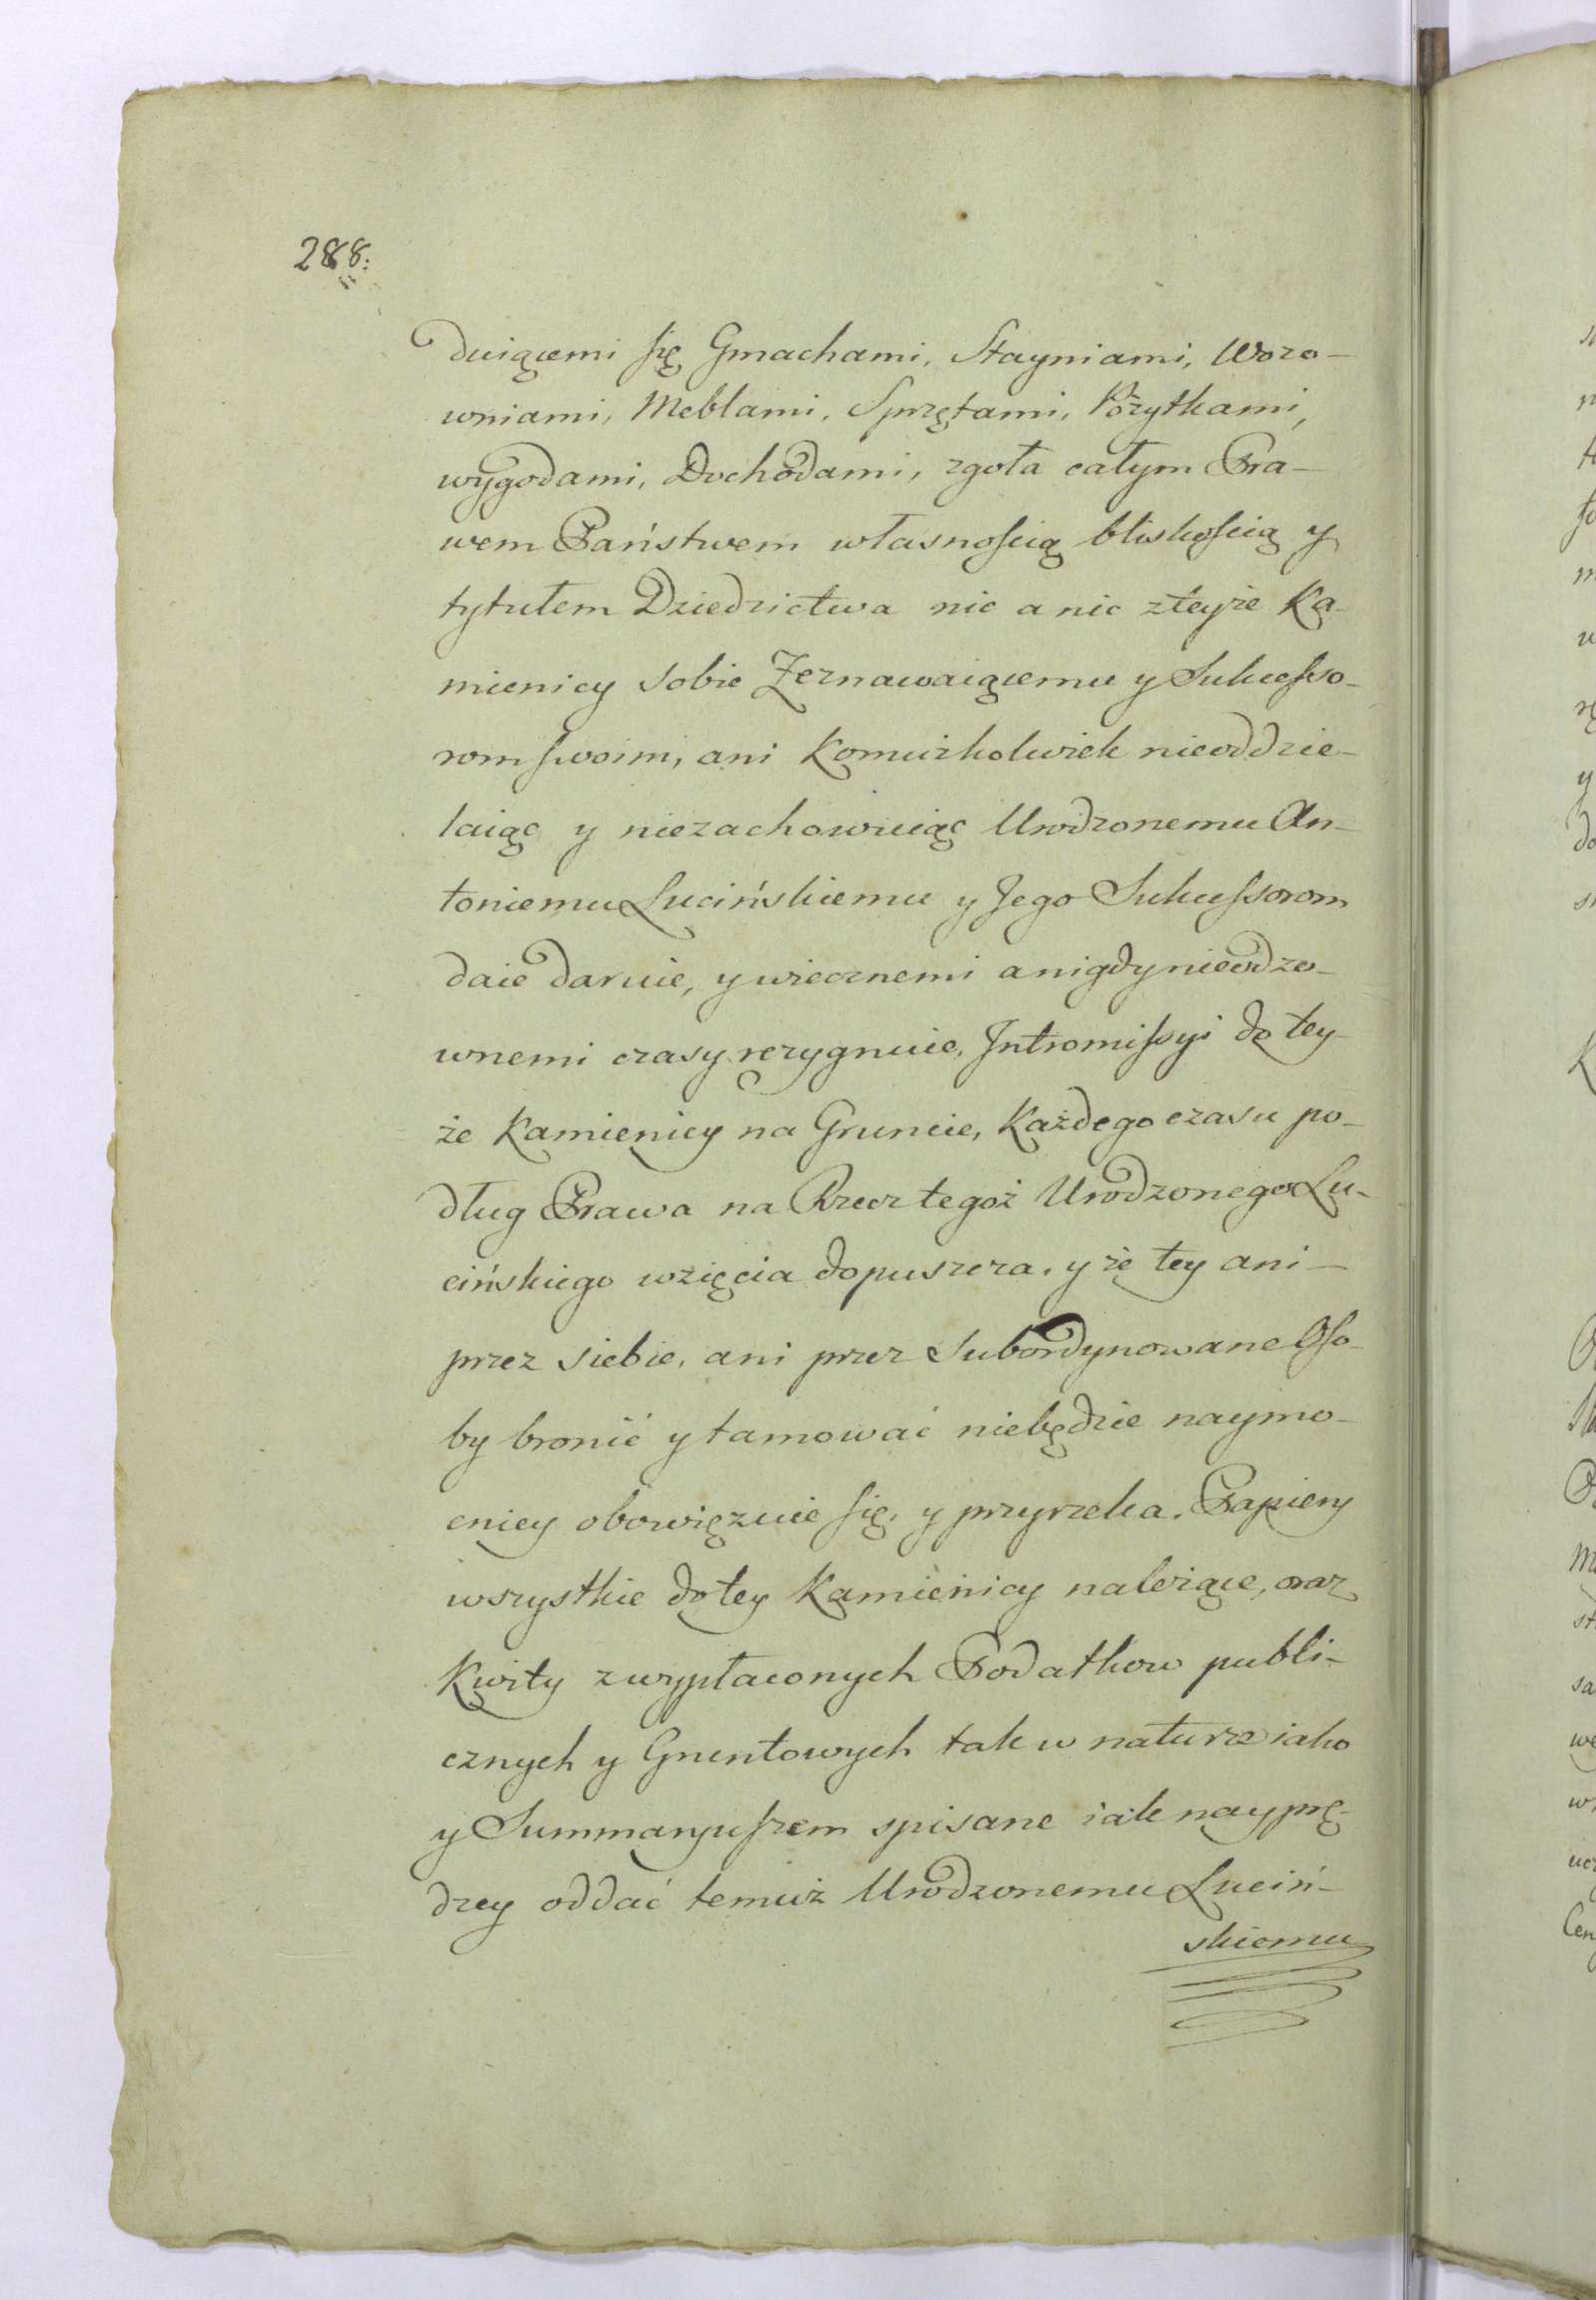 288.
duiącemi się Gmachami, Stayniami, Wozo-
wniami, Meblami, Sprzętami, Pożytkami,
wygodami, Dochodami, zgoła całym Pra-
wem Państwem własnością bliskością y
tytułem Dziedzictwa nic a nic zteyże Ka-
mienicy sobie Zeznawaiącemu y Sukcesso-
rom swoim, ani komużkolwiek nieoddzie-
laiąc y niezachowuiąc Urodzonemu An-
toniemu Lucińskiemu y Jego Sukcessorom
daie daruie, y wiecznemi a nigdy nieodzo-
wnemi czasy rezygnuie, Intromissyi do tey-
że Kamienicy na Gruncie, każdego czasu po-
dług Prawa na Rzecz tegoż Urodzonego Lu-
cińskiego wzięcia dopuszcza, y że tey ani-
przez siebie, ani przez Subordynowane Oso-
by bronić y tamować niebędzie naymo-
cniey obowięzuie się, y przyrzeka. Papiery
wszystkie do tey Kamienicy należące, oraz
Kwity z wypłaconych Podatkow publi-
cznych y Gruntowych tak w naturze iako
y Summaryuszem spisane iak nayprę-
dzey oddać temuż Urodzonemu Luciń-
skiemu